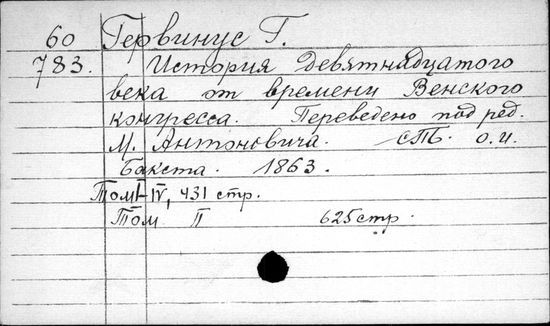 60 Гервинус Г.
783. История Девятнадцатого
века от времени Венского
конгресса. Переведено под ред.
М. Антоновича. сПб. о.и.
Бакста. 1863.
Том I-IV, 431 стр.
Том II 625 стр.